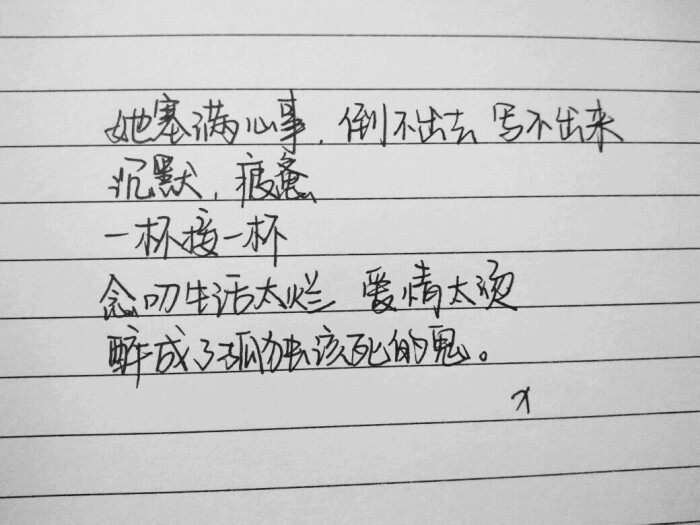 她塞满心事，倒不出去 写不出来
沉默，疲惫
一杯接一杯
念叨生活太烂 爱情太烫
醉成了孤独该死的鬼。
x